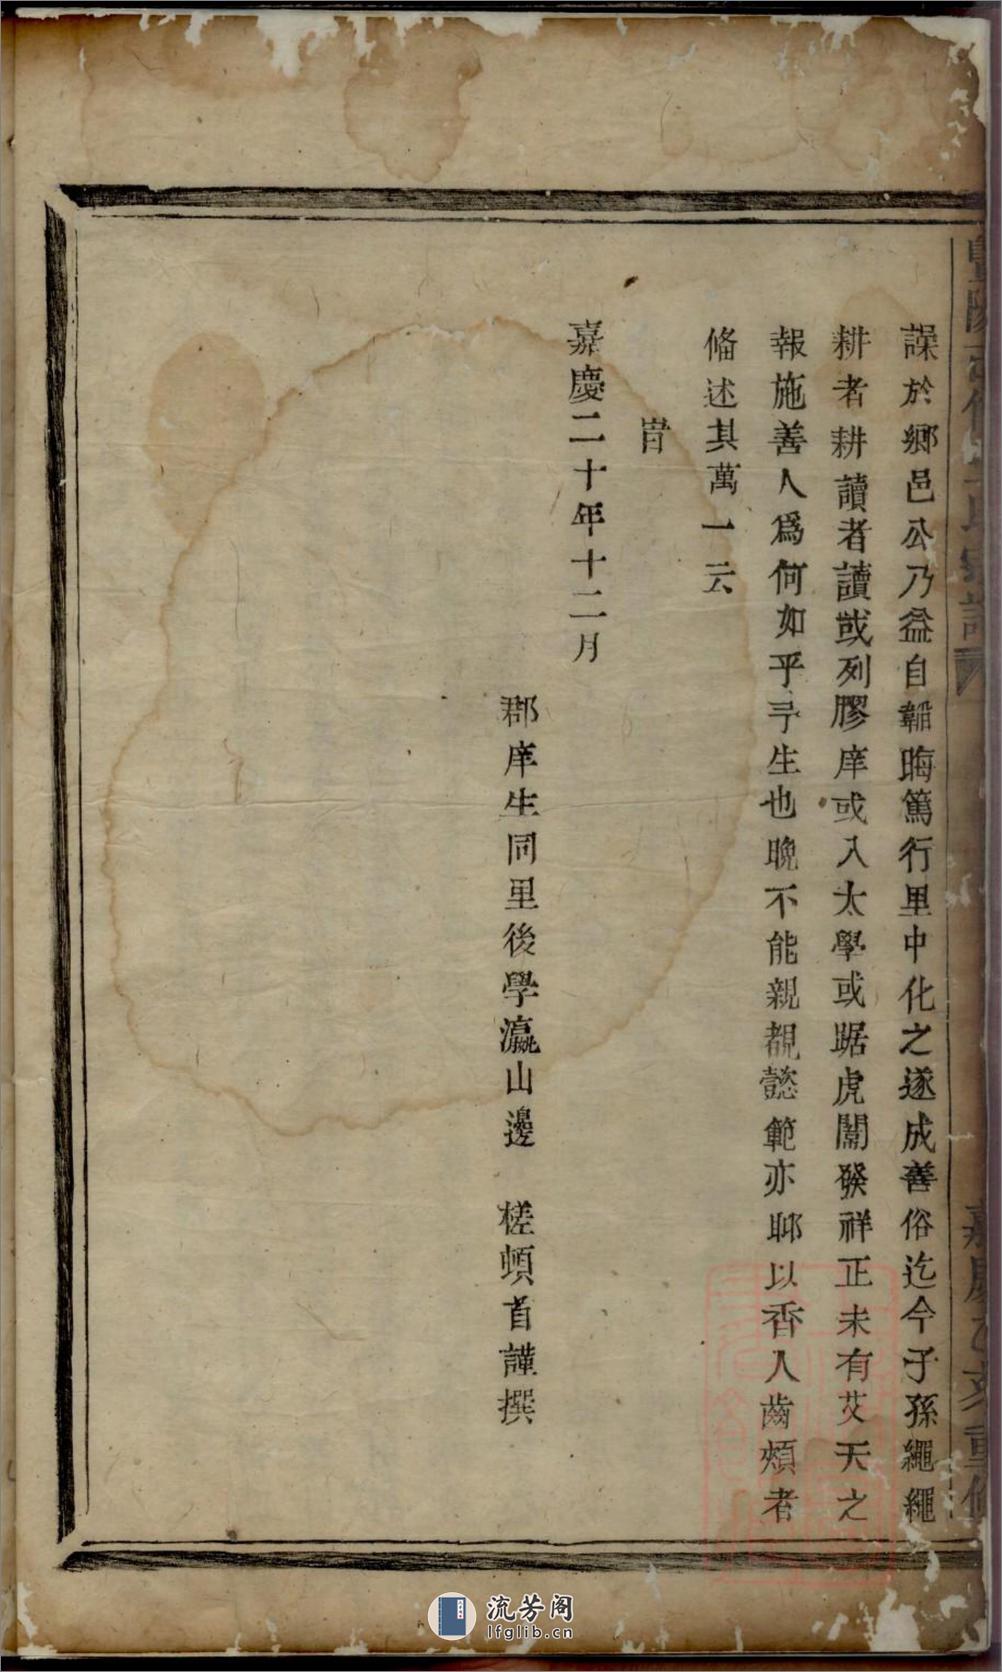 譟於鄉邑公乃益自韜晦篤行里中化之遂成善俗迄今子孫繩繩
耕者耕讀者讀或列膠庠或入太學或踞虎闈發祥正未有艾天之
報施善人爲何如乎予生也晚不能親覩懿範亦聊以香人齒頰者
備述其萬一云
旹
嘉慶二十年十二月
郡庠生同里後學瀛山邊 槎頓首謹撰
嘉慶乙亥重修
流芳阁
lfglib.cn